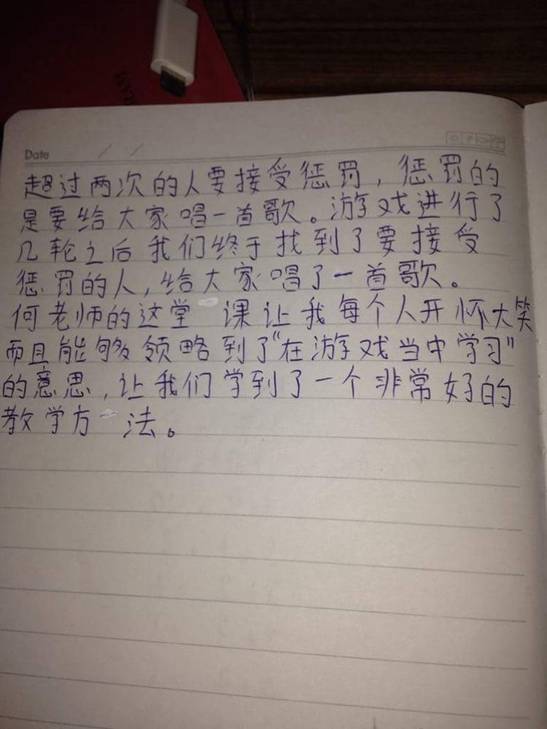 Date / /
超过两次的人要接受惩罚，惩罚的
是要给大家唱一首歌。游戏进行了
几轮之后我们终于找到了要接受
惩罚的人，给大家唱了一首歌。
何老师的这堂课让我每个人开怀大笑
而且能够领略到了“在游戏当中学习”
的意思，让我们学到了一个非常好的
教学方法。